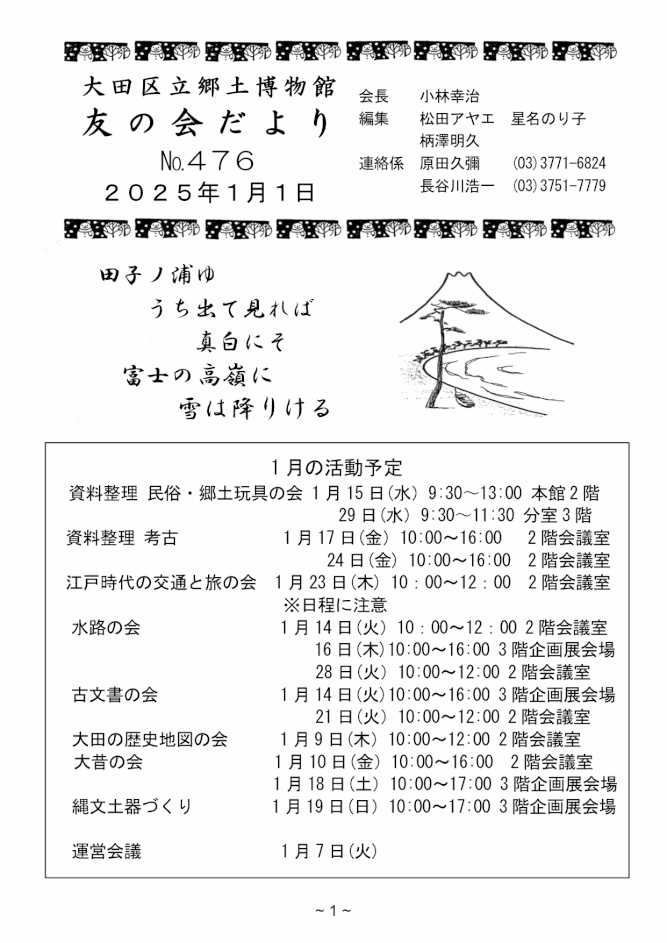 大田区立郷土博物館
友の会だより
№４７６
２０２５年１月１日
会長 小林幸治
編集 松田アヤエ 星名のり子
柄澤明久
連絡係 原田久彌 (03)3771-6824
長谷川浩一 (03)3751-7779
田子ノ浦ゆ
うち出て見れば
真白にそ
富士の高嶺に
雪は降りける
１月の活動予定
資料整理 民俗・郷土玩具の会 1月15日(水) 9:30～13:00 本館2階
29日(水) 9:30～11:30 分室3階
資料整理 考古 1月17日(金) 10:00～16:00 2階会議室
24日(金) 10:00～16:00 2階会議室
江戸時代の交通と旅の会 1月23日(木) 10：00～12：00 2階会議室
※日程に注意
水路の会 1月14日(火) 10：00～12：00 2階会議室
16日(木)10:00～16:00 3階企画展会場
28日(火) 10:00～12:00 2階会議室
古文書の会 1月14日(火)10:00～16:00 3階企画展会場
21日(火) 10:00～12:00 2階会議室
大田の歴史地図の会 1月9日(木) 10:00～12:00 2階会議室
大昔の会 1月10日(金) 10:00～16:00 2階会議室
1月18日(土) 10:00～17:00 3階企画展会場
縄文土器づくり 1月19日(日) 10:00～17:00 3階企画展会場
運営会議 1月7日(火)
~ 1 ~